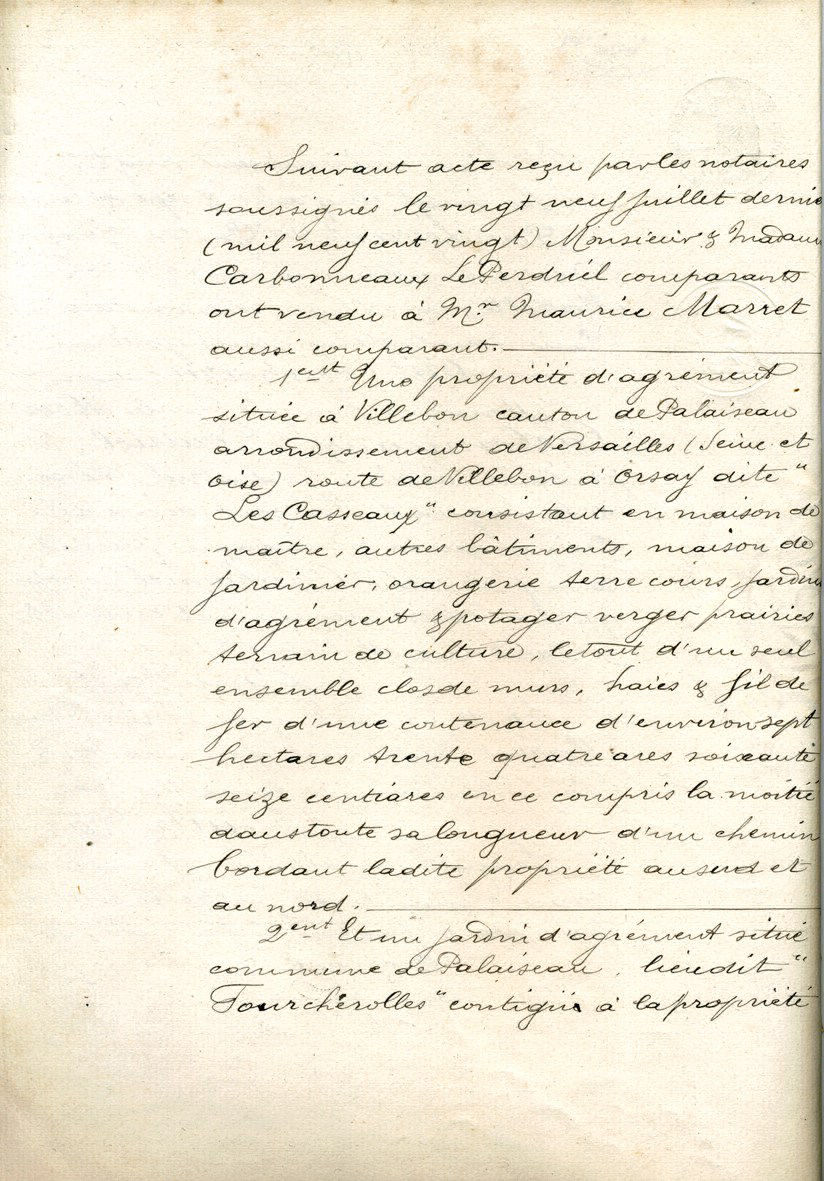 Suivant acte reçu par les notaires
soussignés le vingt neuf juillet dernie
(mil neuf cent vingt) Monsieur & Madam
Carbonneaux Le Perdriel comparants
ont vendu à Mr Maurice Marret
aussi comparant.
1ent Une propriété d'agrément
située à Villebon canton de Palaiseau
arrondissement de Versailles (Seine et
Oise) route de Villebon à Orsay dite "
Les Casseaux" consistant en maison de
maître, autres bâtiments, maison de
jardinier, orangerie terre cours, jardin
d'agrément & potager verger prairies
terrain de culture, le tout d'un seul
ensemble clos de murs, haies & fil de
fer d'une contenance d'environ sept
hectares trente quatre ares soixante
seize centiares en ce compris la moitié
dans toute sa longueur d'un chemin
bordant ladite propriété au sud et
au nord.
2ent Et un jardin d'agrément situé
commune de Palaiseau, lieudit "
Fourchérolles" contigüe à la propriété